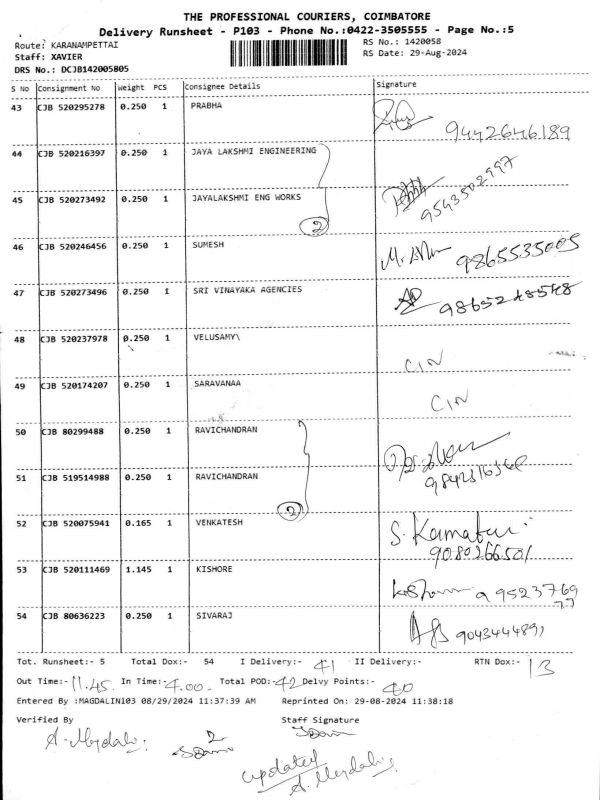 THE PROFESSIONAL COURIERS, COIMBATORE
Delivery Runsheet - P103 - Phone No.:0422-3505555 - Page No.:5
Route: KARANAMPETTAI RS No.: 1420058
Staff: XAVIER RS Date: 29-Aug-2024
DRS No.: DCJB142005805
S No Consignment No Weight PCS Consignee Details Signature
43 CJB 520295278 0.250 1 PRABHA
9442646189
44 CJB 520216397 0.250 1 JAYA LAKSHMI ENGINEERING
9543502997
45 CJB 520273492 0.250 1 JAYALAKSHMI ENG WORKS
2
46 CJB 520246456 0.250 1 SUMESH 9865535005
47 CJB 520273496 0.250 1 SRI VINAYAKA AGENCIES 9865248548
48 CJB 520237978 0.250 1 VELUSAMY\
CIN
49 CJB 520174207 0.250 1 SARAVANAA
CIN
50 CJB 80299488 0.250 1 RAVICHANDRAN
51 CJB 519514988 0.250 1 RAVICHANDRAN
2
52 CJB 520075941 0.165 1 VENKATESH
9080266501
53 CJB 520111469 1.145 1 KISHORE
9523769
77
54 CJB 80636223 0.250 1 SIVARAJ
Tot. Runsheet:- 5 Total Dox:- 54 I Delivery:- 41 II Delivery:- RTN Dox:- 13
Out Time:- 11.45. In Time:- 4.00. Total POD:- 42 Delvy Points:- 40
Entered By :MAGDALIN103 08/29/2024 11:37:39 AM Reprinted On: 29-08-2024 11:38:18
Verified By Staff Signature
updated